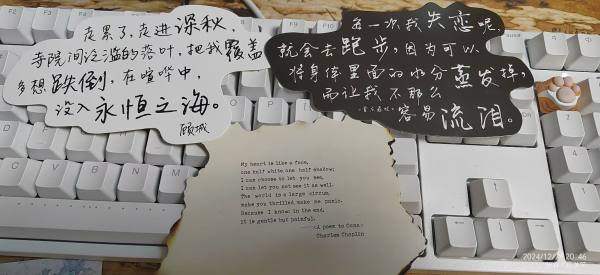 走累了，走进深秋
寺院间泛滥的落叶，把我覆盖
多想跌倒，在喧哗中，
没入永恒之海。
顾城
每一次我失恋呢，
就会去跑步，因为可以
将身体里面的水分蒸发掉，
而让我不那么
容易流泪。
My heart is like a face,
one half white one half shadow;
I can choose to let you see,
I can let you not see it as well.
The world is a large circus,
make you thrilled make me panic.
Because I know in the end,
it is gentle but painful.
A poem to Oona
Charles Chaplin
2024/12/ 20:46